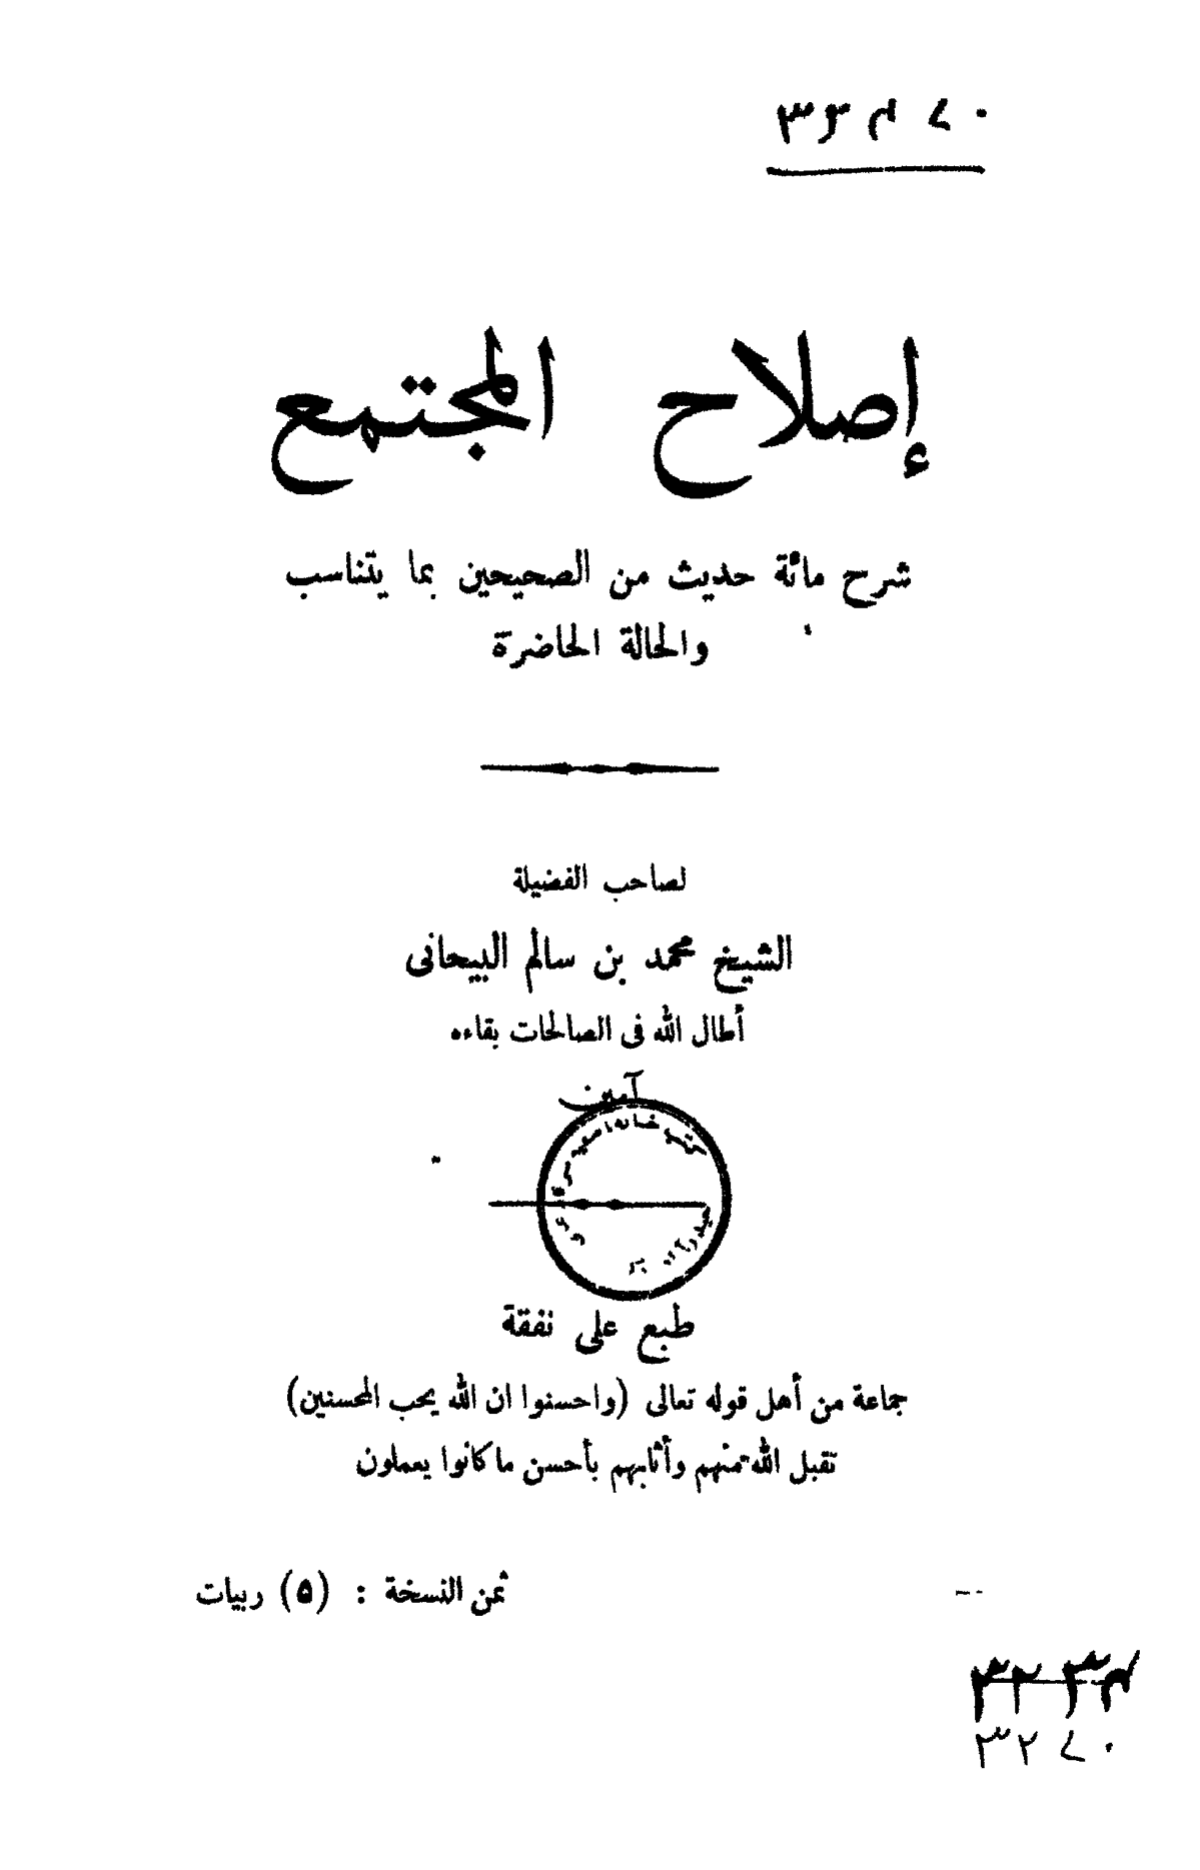 إصلاح المجتمع
شرح مائة حديث من الصحيحين بما يتناسب
والحالة الحاضرة
لصاحب الفضيلة
الشيخ محمد بن سالم البيحانى
أطال الله فى الصالحات بقاءه
آمين
كتب خانه
طبع على نفقة
جماعة من أهل قوله تعالى (واحسنوا ان الله يحب المحسنين)
تقبل الله منهم وأثابهم بأحسن ما كانوا يعملون
ثمن النسخة : (۵) ربيات